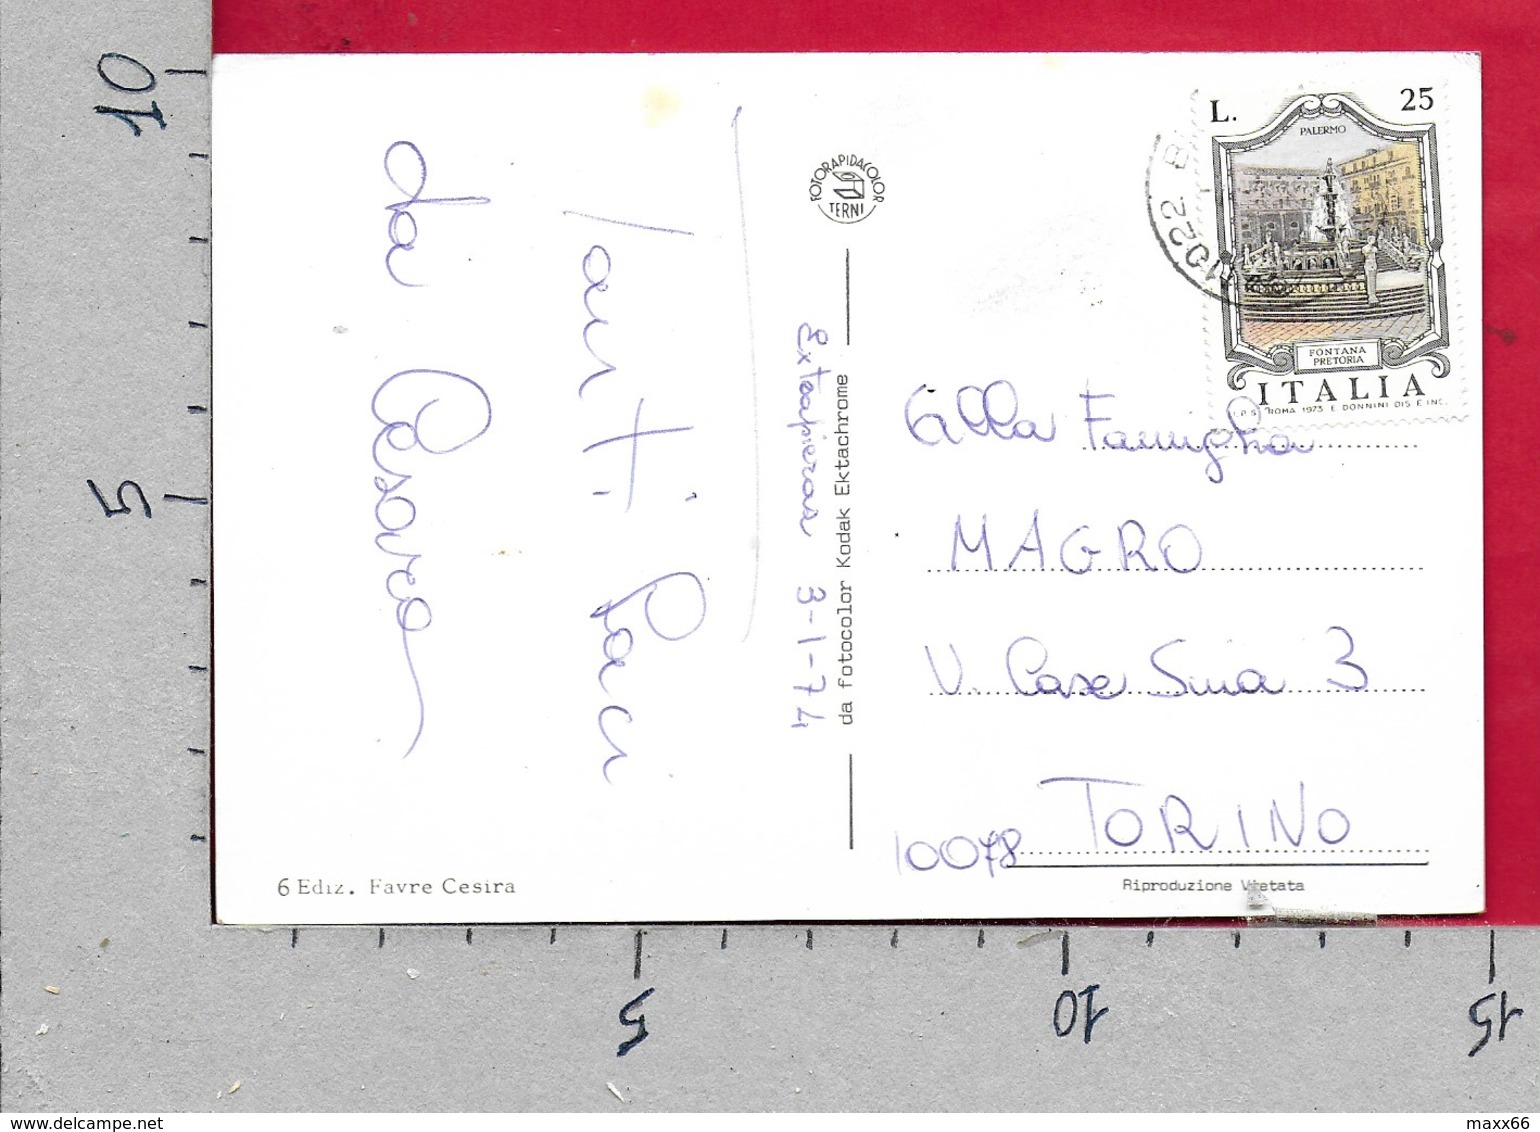 10
5
Tanti Baci
da Cesarea
Extrapieras 3-1-74
FOTORAPIDACOLOR
TERNI
da fotocolor Kodak Ektachrome
6 Ediz. Favre Cesira
1022 B
L. 25
PALERMO
FONTANA
PRETORIA
ITALIA
I.P.S. ROMA 1973 E DONNINI DIS E INC.
Alla Famiglia
MAGRO
V. Case Snia 3
10078 TORINO
Riproduzione Vietata
5
10
15
www.delcampe.net
maxx66